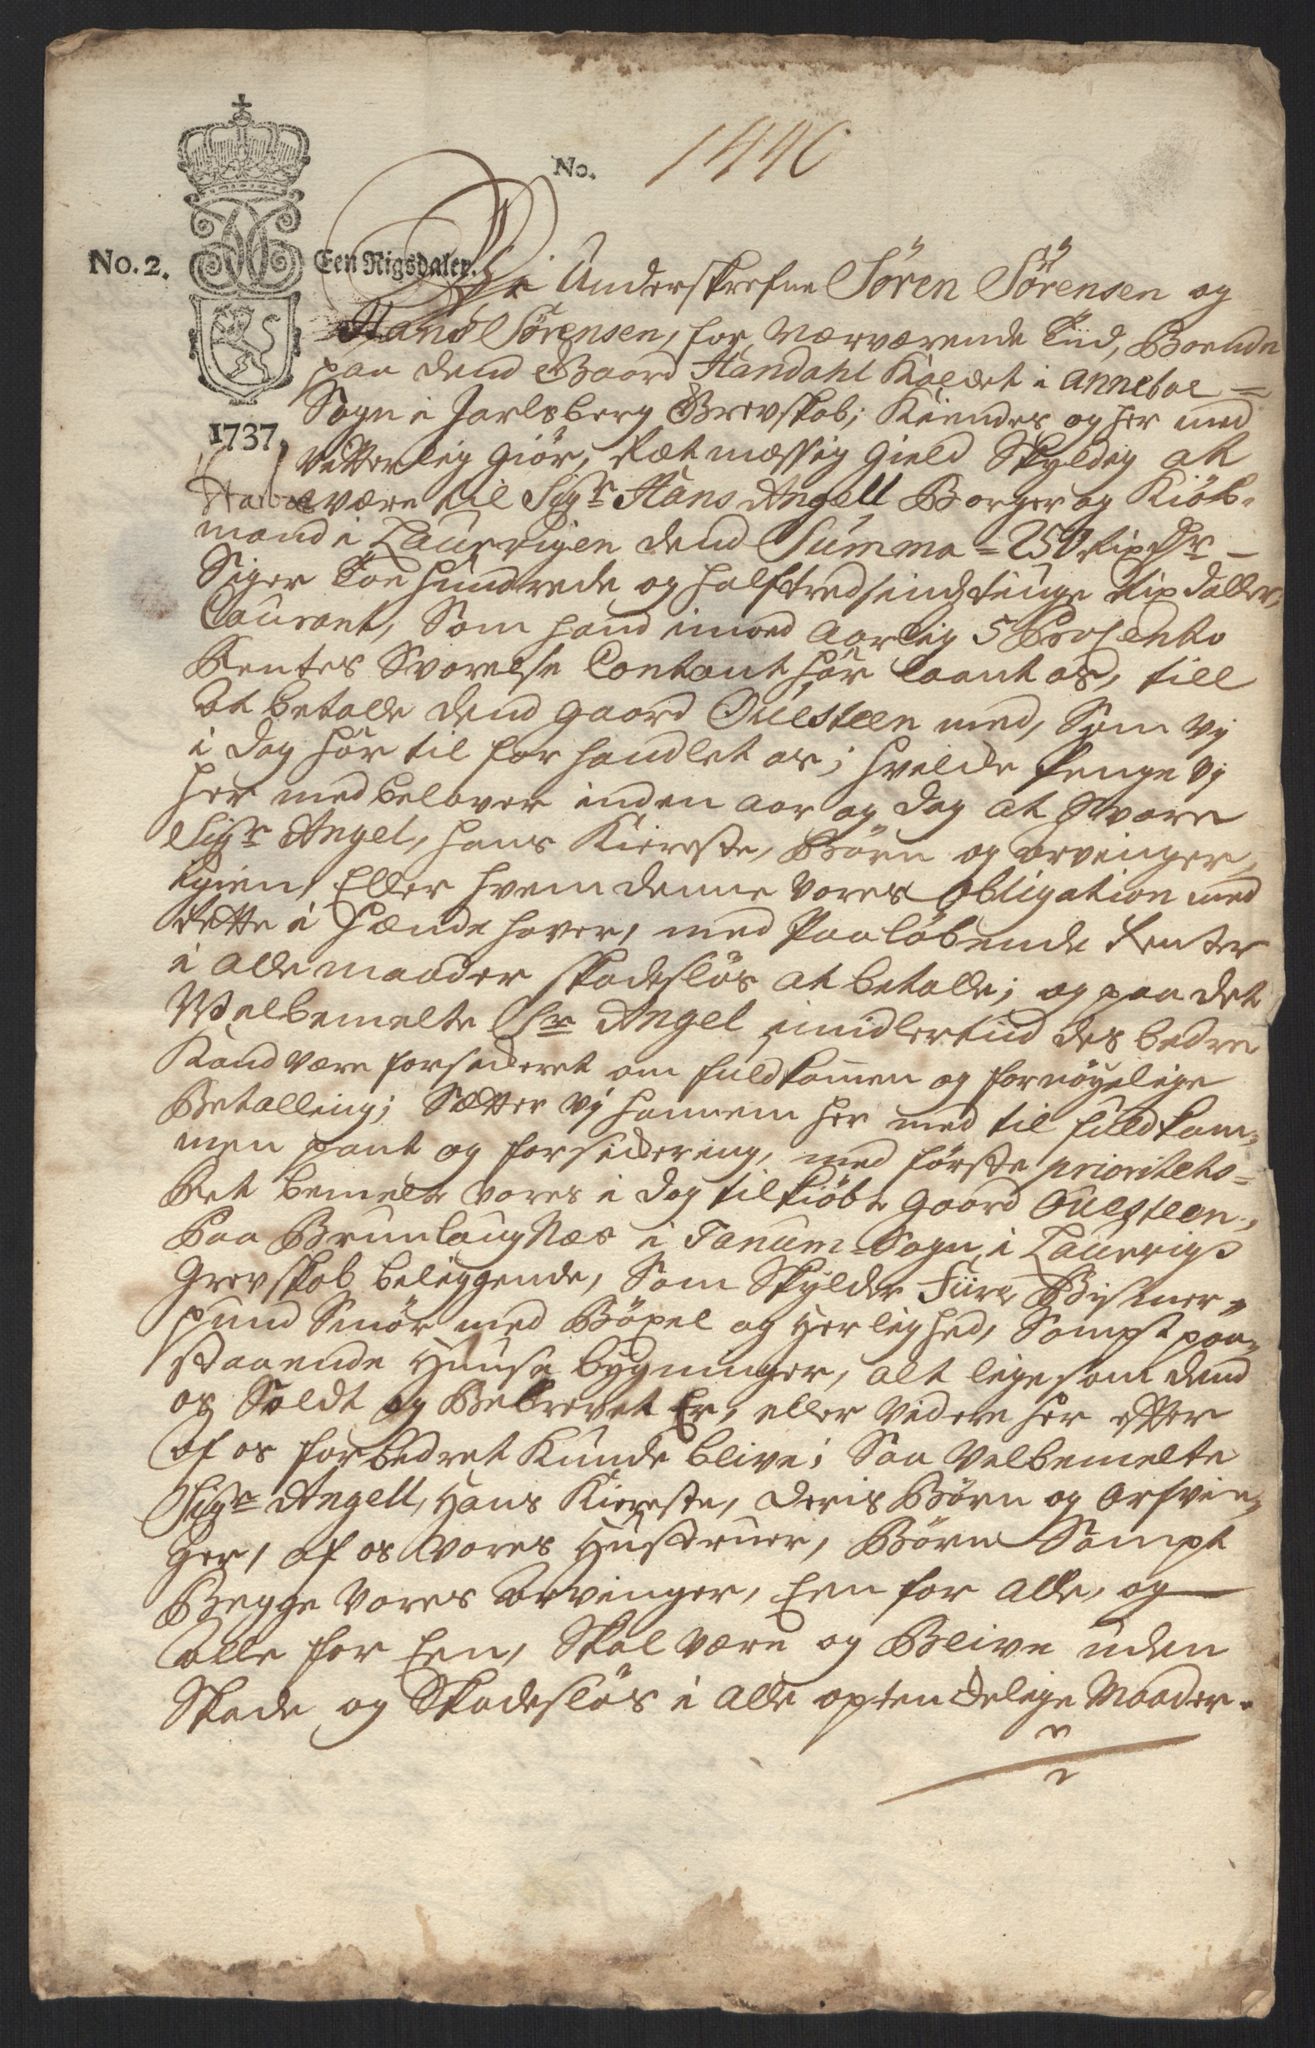 No. 1440
No. 2. Een Rigsdaler.
1737.
Vi Underskrefne Sören Sörensen og
Hans Sörensen, for nærværende Tiid, Boende
paa dend Gaard Handahl Kaldet i Anneboe =
Sogn i Jarlsberg Grevskab; Kiendes og her med
Vitterlig giör, Ræt mæssig gield Skyldig at
være til Sigr Hans Angell Borger og Kiöb-
mand i Laurvigen dend Summa = 250 Rixdr —
Siger Toe hundrede og halftredsindstiuge Rixdaller
Courant, Som hand imod Aarlig 5 ProCento
Rentes Svarelse Contant hår laant os, till
At betalle dend gaard Oulsteen med, Som vj
i dag hår til forhandlet os; hvilcke Penge Vj
her med belover inden Aar og dag at Svare
Sigr Angel, hans Kiereste, Börn og arvinger,
igien, Eller hvem denne Vores Obligation med
Rette i hænde haver, med Paalöbende Renter
i alle maader skadeslös at betalle; og paa det
Velbemelte Sr Angel imidlertiid des bedre
Kand være forsickeret om fuldkommen og fornöyelige
Betalling; Sætter Vj hannem her med til fuldkom-
men pant og forsickering, med förste prioritets-
Ret bemelte vores i dag tilkiöbte gaard Oulsteen,
Paa BrunlaugNæs i Tanum Sogn i Laurvigs
Grevskab beliggende, Som Skylder Fiire Bismer-
pund Smör med Böxel og Herlighed, Sampt paa-
staaende Huuse bygninger, alt ligesom dend
os Soldt og Bebrevet Er, eller videre her efter
af os forbedret Kunde blive; Saa Velbemelte
Sigr Angell, Hans Kiereste, deris Börn og Arfvin-
ger, af os vores Hustruer, Börn Sampt
Begge Vores Arvinger, Een for alle, og
alle for Een, Skal være og Blive uden
Skade og Skadeslös i alle optendkelige Maader.